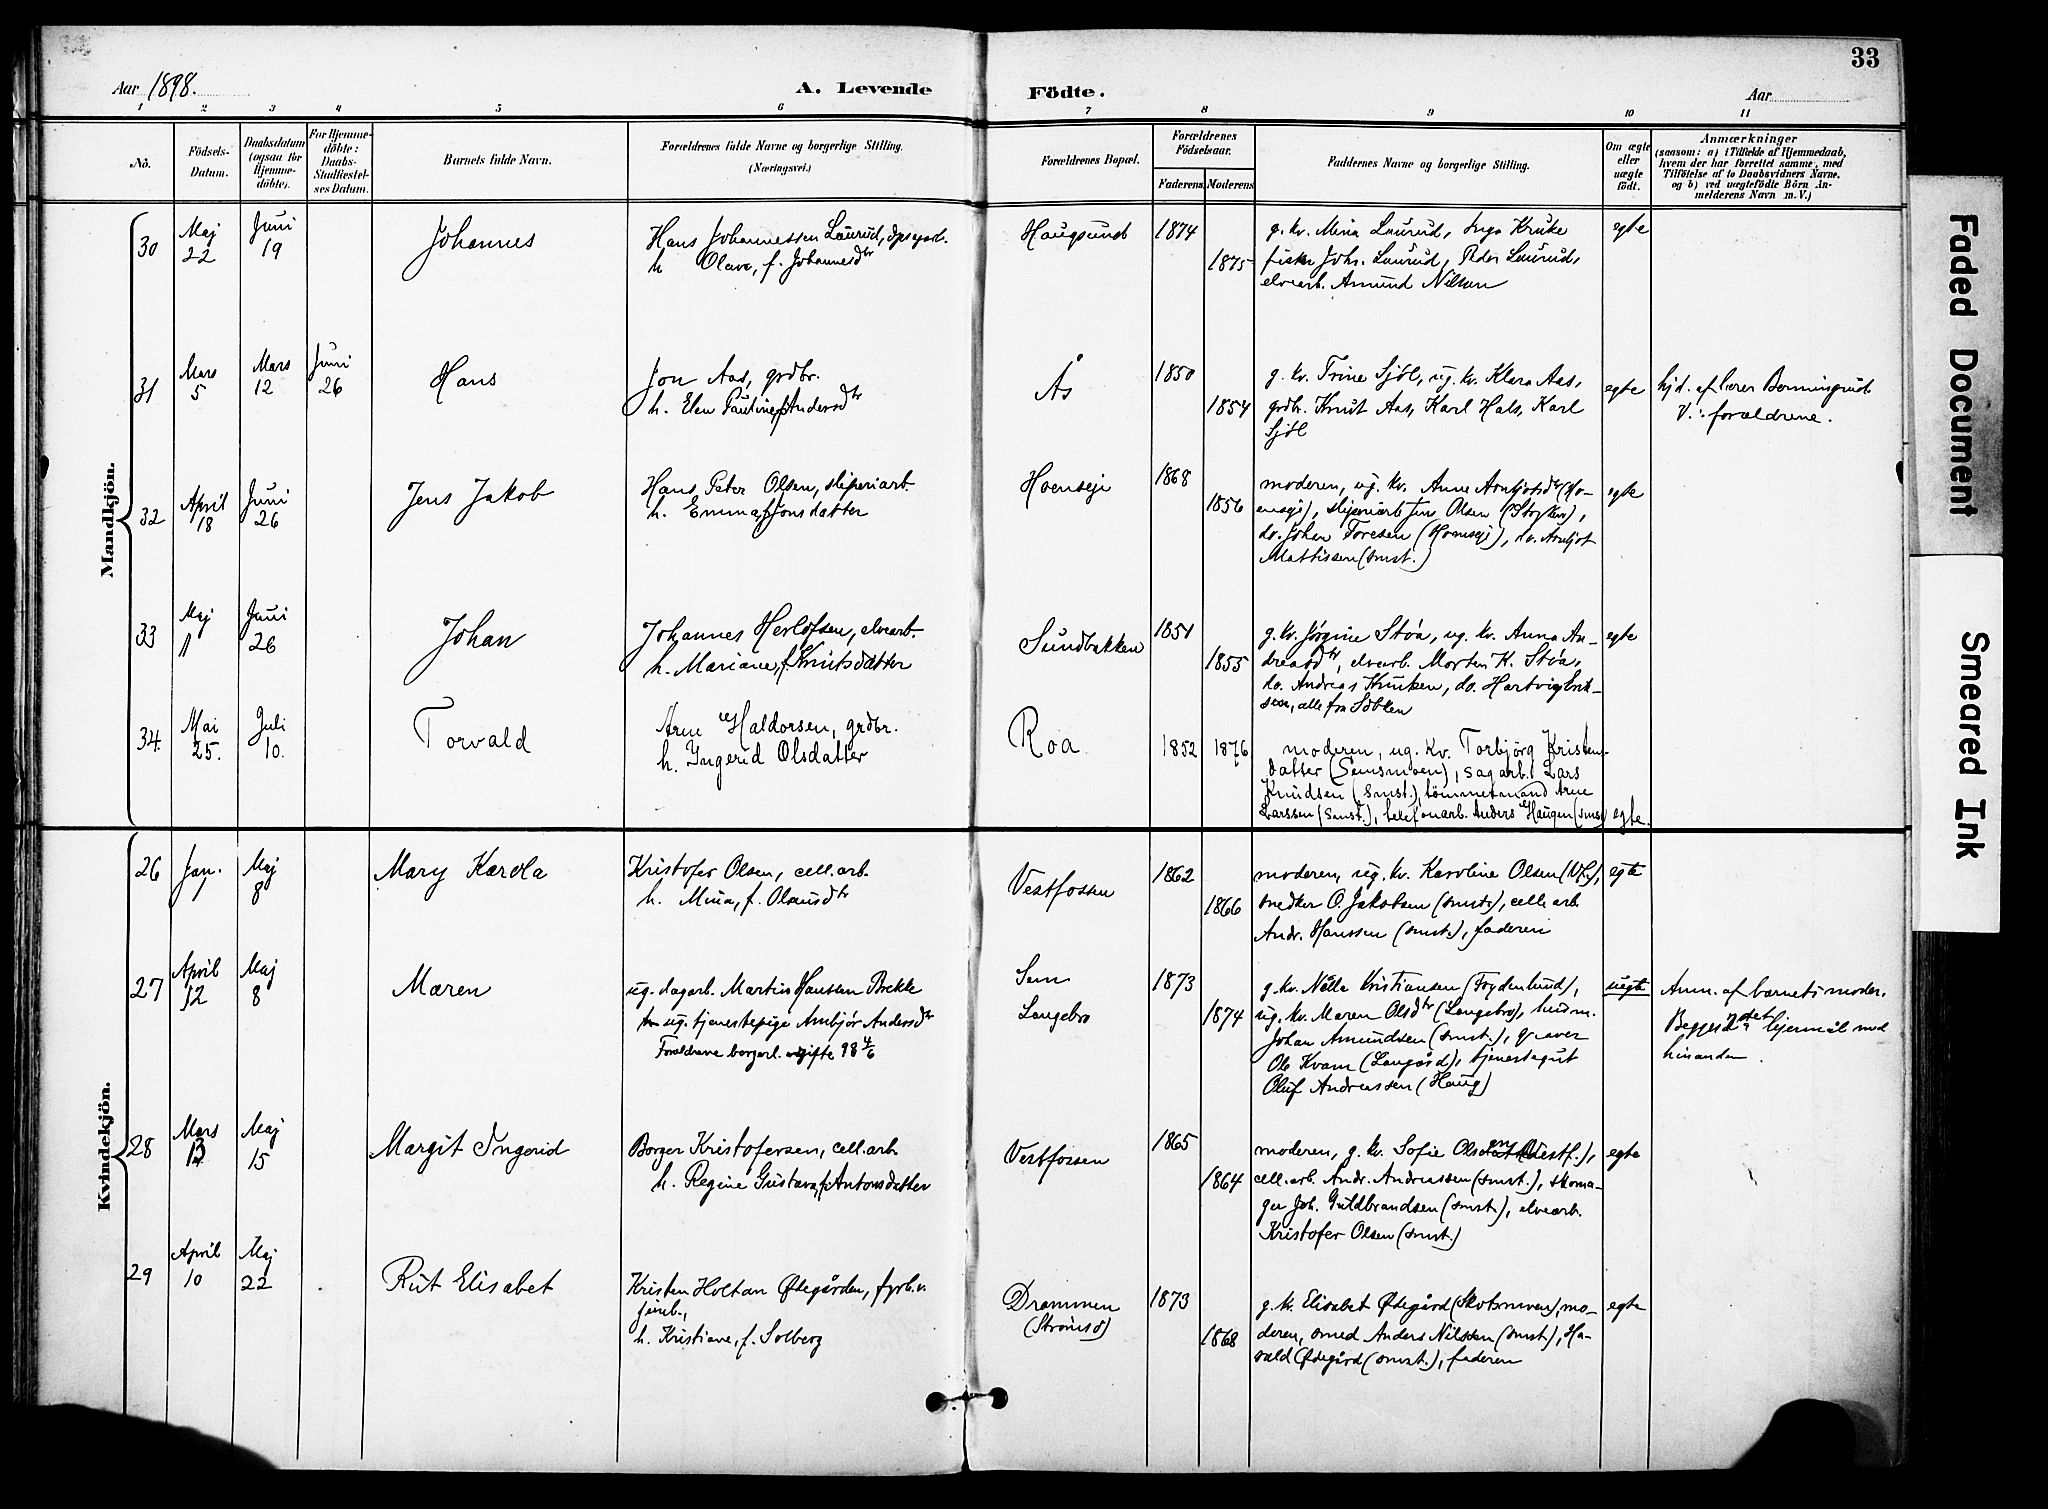 33
Aar 1898.
A. Levende Födte.
Aar
1 2 3 4 5 6 7 8 9 10 11
No.
Födsels-Datum.
Daabsdatum (ogsaa for Hjemmedöbte).
For Hjemmedöbte: Daabs-Stadfæstelses Datum.
Barnets fulde Navn.
Forældrenes fulde Navne og borgerlige Stilling.
(Næringsvei.)
Forældrenes Bopæl.
Forældrenes Födselsaar.
Faderens Moderens
Faddernes Navne og borgerlige Stilling.
Om ægte eller uægte födt.
Anmærkninger
(saasom: a) i Tilfælde af Hjemmedaab,
hvem der har forrettet samme, med
Tilföielse af to Daabsvidners Navne,
og b) ved uægtefödte Börn Anmelderens Navn m. V.)
Mandkjön.
30 Maj 22 Juni 19 Johannes
Hans Johannessen Laurud,
h. Olava, f. Johannesdtr
Haugsund 1874 1875
g. kv. Mina Laurud, Inga Kruke
Johs. Laurud, Peder Laurud,
elvearb. Amund Nilsen
egte
31 Mars 5 Mars 12 Juni 26 Hans
Jon Aas, grdbr.
h. Elen Pauline, f. Andersdtr
Ås 1850 1854
g. kv. Trine Sjöl, ug. kv. Klara Aas,
grdbr. Knut Aas, Karl Hals, Karl
Sjöl
egte
hjd. af lærer
V.: forældrene.
32 April 18 Juni 26 Jens Jakob
Hans Peter Olsen, sliperiarb.
h. Emma, f. Jonsdatter
Hoenseje 1868 1856
moderen, ug. kv. Anne Arnljotsdtr (Ho-
enseje), sliperiarb. Jens Olsen
do. Johan Toresen (Hoenseje), do. Arnljot
Mattissen (smst.)
egte
33 Maj 11 Juni 26 Johan
Johannes Herlofsen, elvearb.
h. Mariane, f. Knutsdatter
Sundbakken 1851 1855
g. kv. Jørgine Støa, ug. kv. Anna An-
dreasdtr, elvearb. Morten K. Støa,
do. Andreas Knutsen, do. Hartvig Erik-
sen, alle fra
egte
34. Mai 25. Juli 10. Torvald
Arne Haldorsen, grdbr.
h. Ingerid Olsdatter
Roa 1852 1876
moderen, ug. Kv. Torbjörg Kristens-
datter (Semsmoen), sagarb. Lars
Knudsen (Smst.), tömmermand Arne
Larssen (Smst.), telefonarb. Anders Haugen (smst)
egte.
Kvindekjön.
26 Jan. 1 Maj 8 Mary Karola
Kristofer Olsen, cell. arb.
h. Mina, f. Olausdtr
Vestfossen 1862 1866
moderen, ug. kv. Karoline Olsen (Vf.),
snedker O. Jakobsen (smst.), cell. arb.
Andr. Hanssen (smst.), faderen
egte
27 April 12 Maj 8 Maren
ug. dagarb. Martin Hanssen Brekke
ug. tjenestepige Anbjør Andersdtr
Forældrene borgerl. gifte 98 4/6
Sem
Langebro 1873 1874
g. kv. Nella Kristiansen (Frydenlund),
ug. kv. Maren Olsdtr (Langebro), husm.
Johan Amundsen (smst.), graver
Ole Kvam (Langård), tjenestegut
Oluf Andreassen (Haug)
uegte
Anm. af barnets moder.
Begges 2det lejermål med
hinanden.
28 Mars 13 Maj 15 Margit Ingerid
Borger Kristofersen, cell. arb.
h. Regine Gustava, f. Antonsdatter
Vestfossen 1865 1864
moderen, g. kv. Sofie Olsen (Vestf.),
cell. arb. Andr. Andreassen (smst.), skoma-
ger Joh. Guldbrandsen (smst.), elvearb.
Kristofer Olsen (smst.)
egte
29 April 10 Maj 22 Rut Elisabet
Kristen Holtan Ødegården, fyrb. v.
jernb.,
h. Kristiane, f. Solberg
Drammen
(Strømsø) 1873 1868
g. kv. Elisabet Ødegård (Skotsmoen), mo-
deren, smed Anders Nilssen (smst.), Ha-
rald Ødegård (smst.), faderen
egte
Faded Document
Smeared Ink